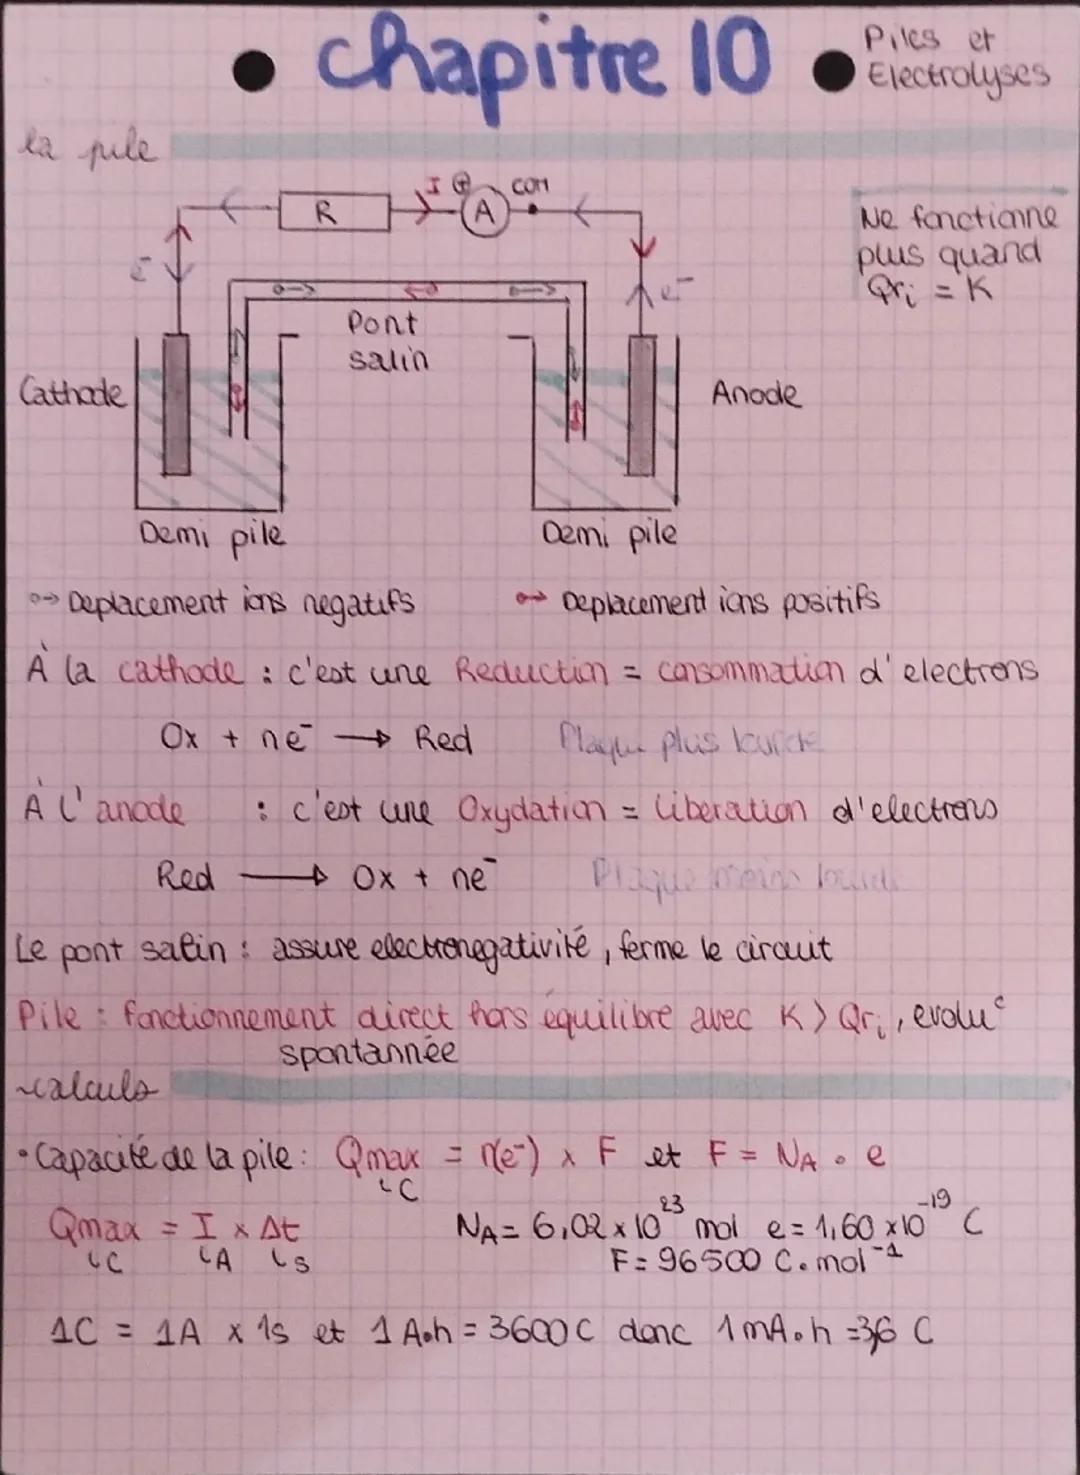 Chapitre 10
Piles et
Electrolyses
la pile
I ⊕ COM
R A
e⁻
e⁻
Ne fonctionne
plus quand
Qri = K
Pont
salin
Cathode
Anode
Demi pile
Demi pile
Deplacement ions negatifs
Deplacement ions positifs
À la cathode : c'est une Reduction = consommation d'electrons
Ox + ne⁻ → Red Plaque plus lourde
À l'anode : c'est une Oxydation = Liberation d'electrons
Red → Ox + ne⁻ Plaque moins lourde
Le pont salin : assure electronegativité, ferme le circuit
Pile : fonctionnement direct hors équilibre avec K > Qri, evolu°
spontannée
calculs
• Capacité de la pile : Qmax = n(e⁻) x F et F = NA • e
C
Qmax = I x Δt
C A s
NA = 6,02 x 10²³ mol e = 1,60 x 10⁻¹⁹ C
F = 96500 C.mol⁻¹
1C = 1A x 1s et 1 A.h = 3600 C donc 1 mA.h = 3,6 C